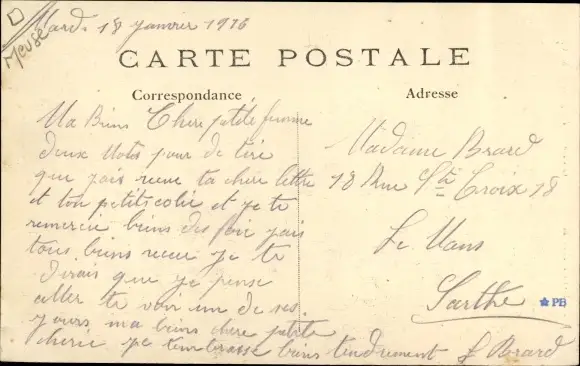 Mardi 18 janvier 1916
Meuse
CARTE POSTALE
Correspondance
Adresse
Ma Biens Chere petite femme
deux mots pour de tire
que jais recue ta chere lettre
et ton petit colie et je te
remercie biens des foie jais
tous biens recue je te
dirais que je pense
aller te voir un de ses
jours ma biens chere petite
cherie je tembrasse biens tendrement
Brard
Madame Brard
18 Rue Ste Croix 18
Le Mans
Sarthe
PB